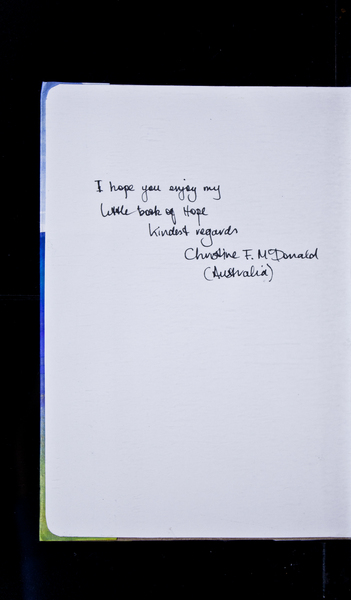 I hope you enjoy my
little book of Hope
Kindest regards
Christine F. McDonald
(Australia)